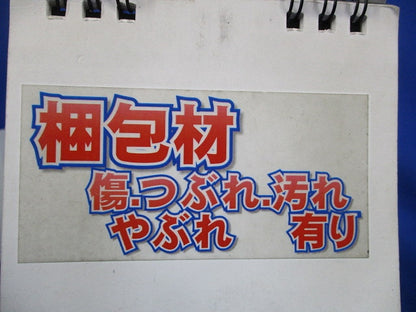 梱包材
傷.つぶれ.汚れ
やぶれ 有り